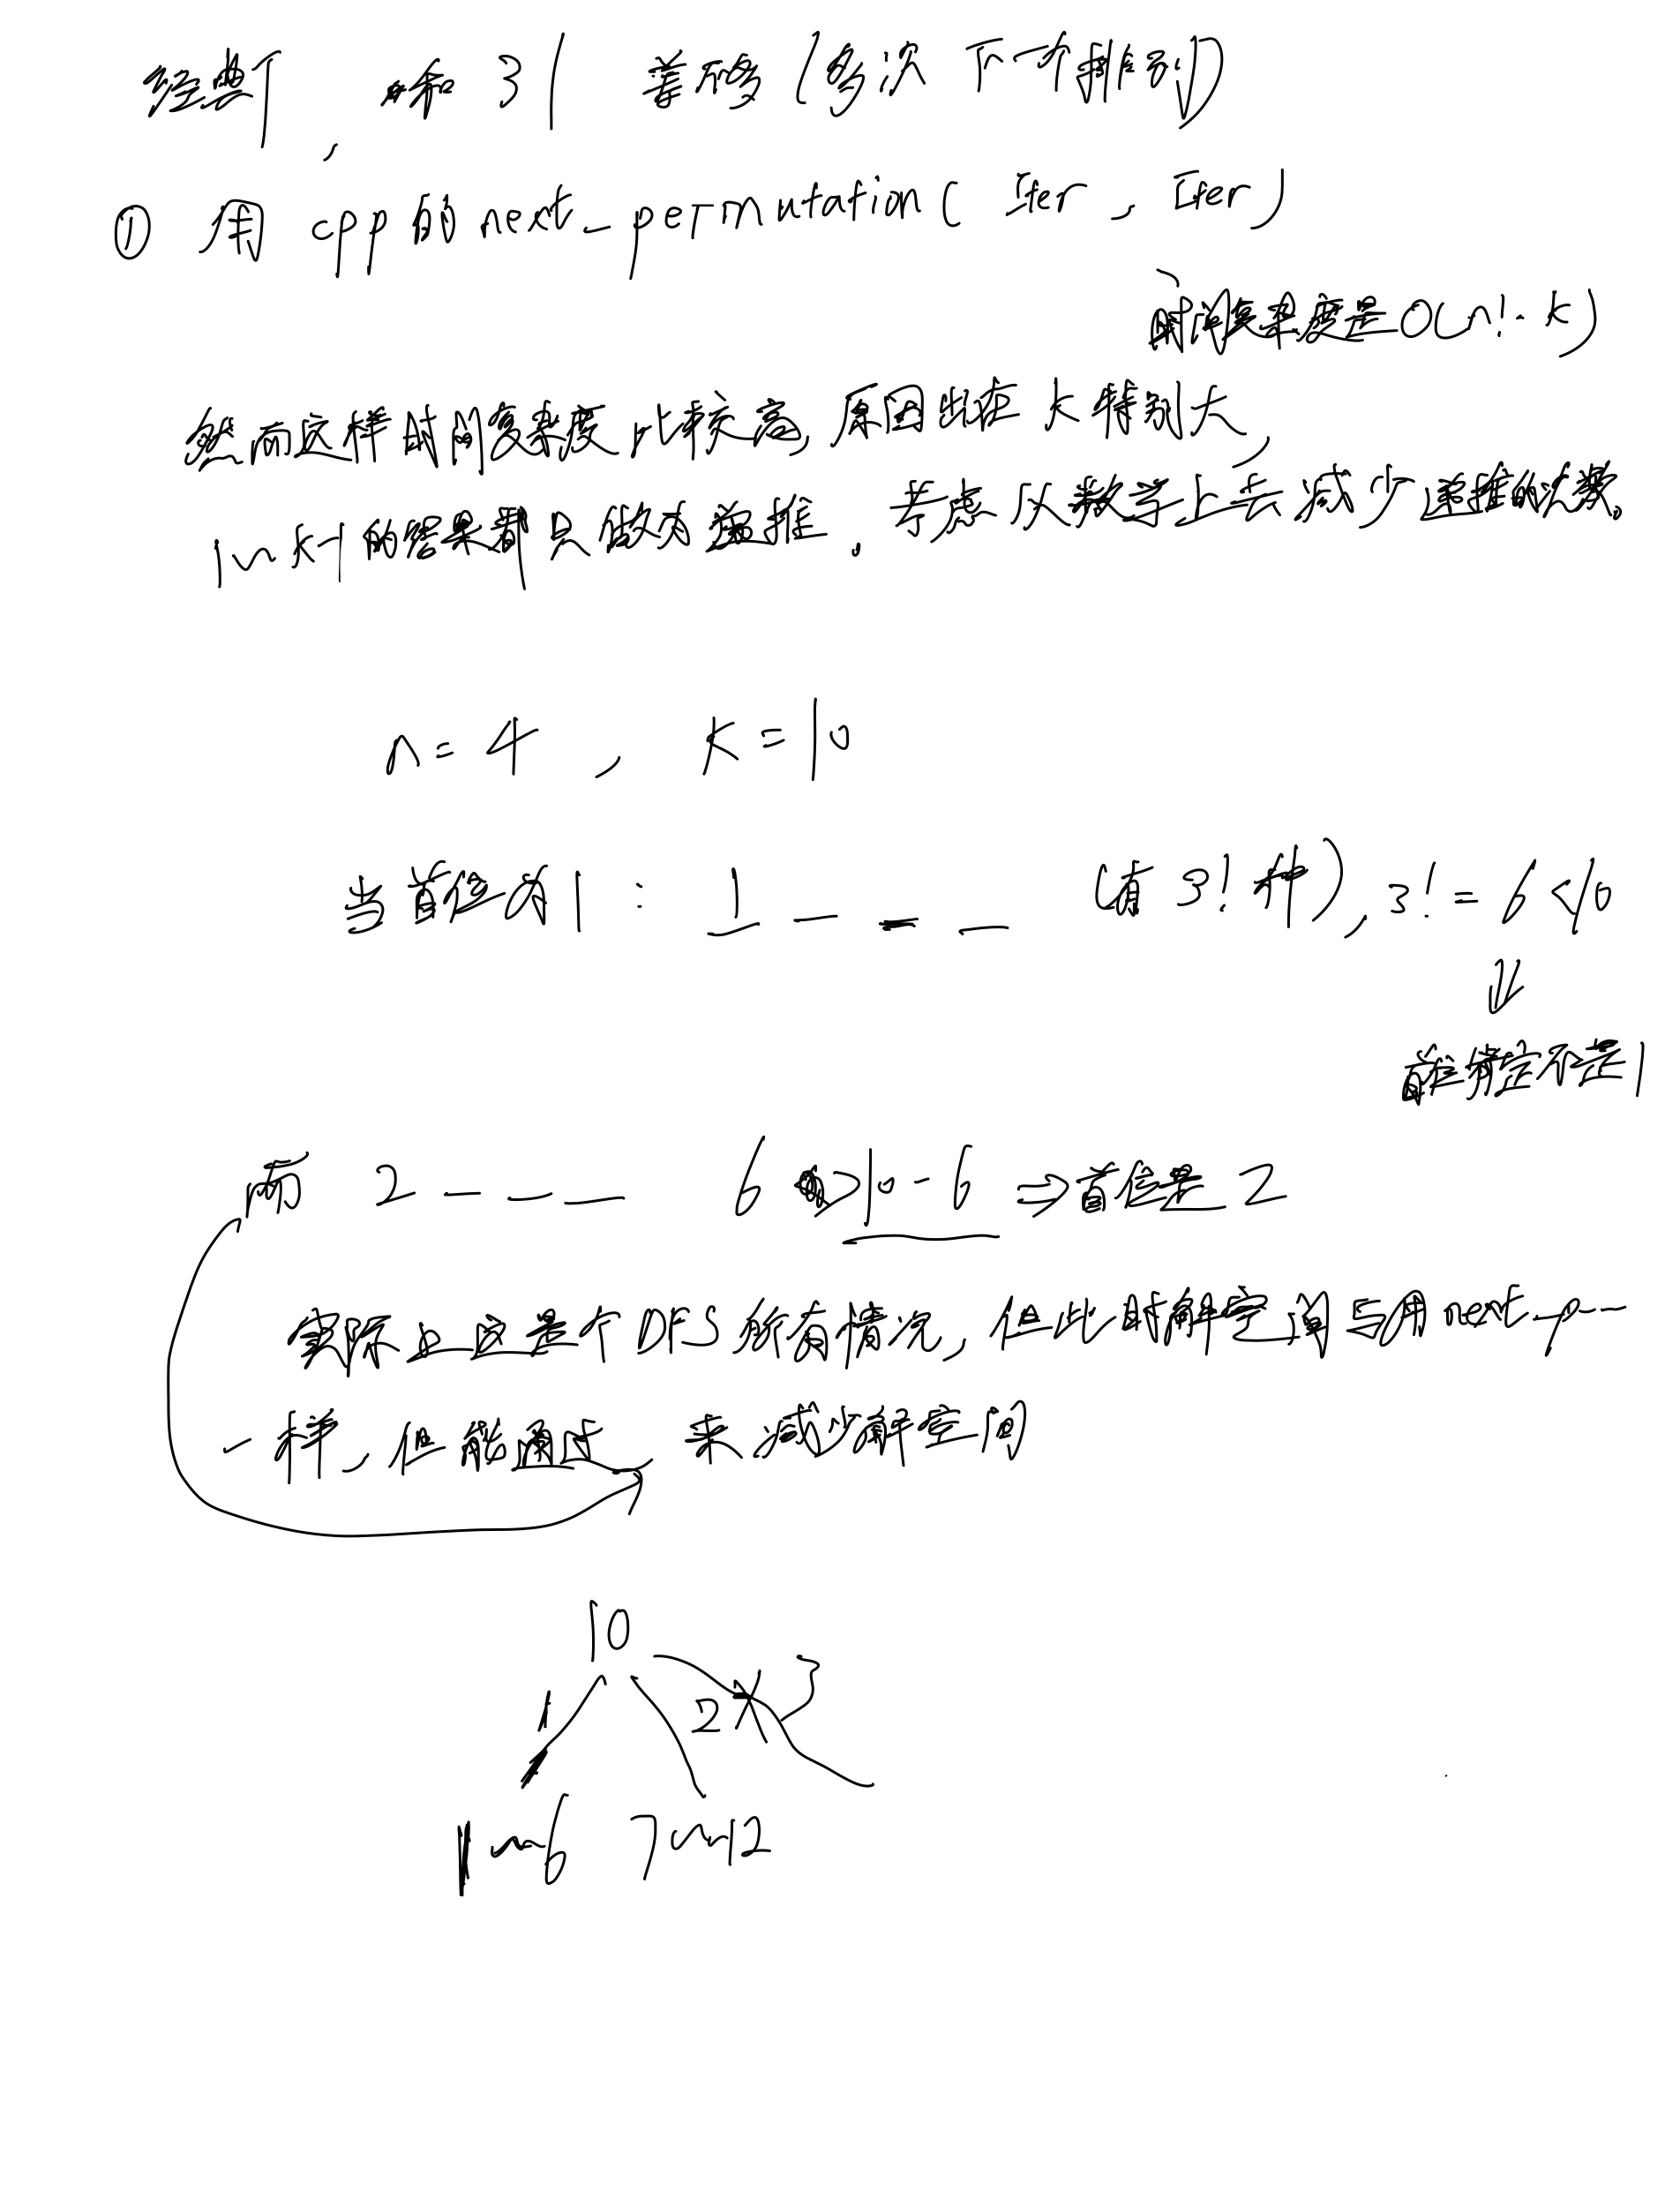 经典, 和31 差不多(多次下一个排列)
① 用cpp的next_permutation( Iter , Iter)
时间复杂度是O(n!·k)
然而这样时间复杂度比较高, 原因出在k特别大,
1~k-1的结果都只做为递推. 考虑从数学上去减少递推的次数.
n=4 , k=10
当首位为1 : 1 _ _ _ (有3!种), 3!=6<10
⇓
首位肯定不是1
而 2 _ _ _ 6 >10-6 ⇒首位是2
实际上应是个DFS所有情况, 但此时解空间与用next_p--
一样, 但能通过 来减少解空间
10
1 2 3
1~6 7~12